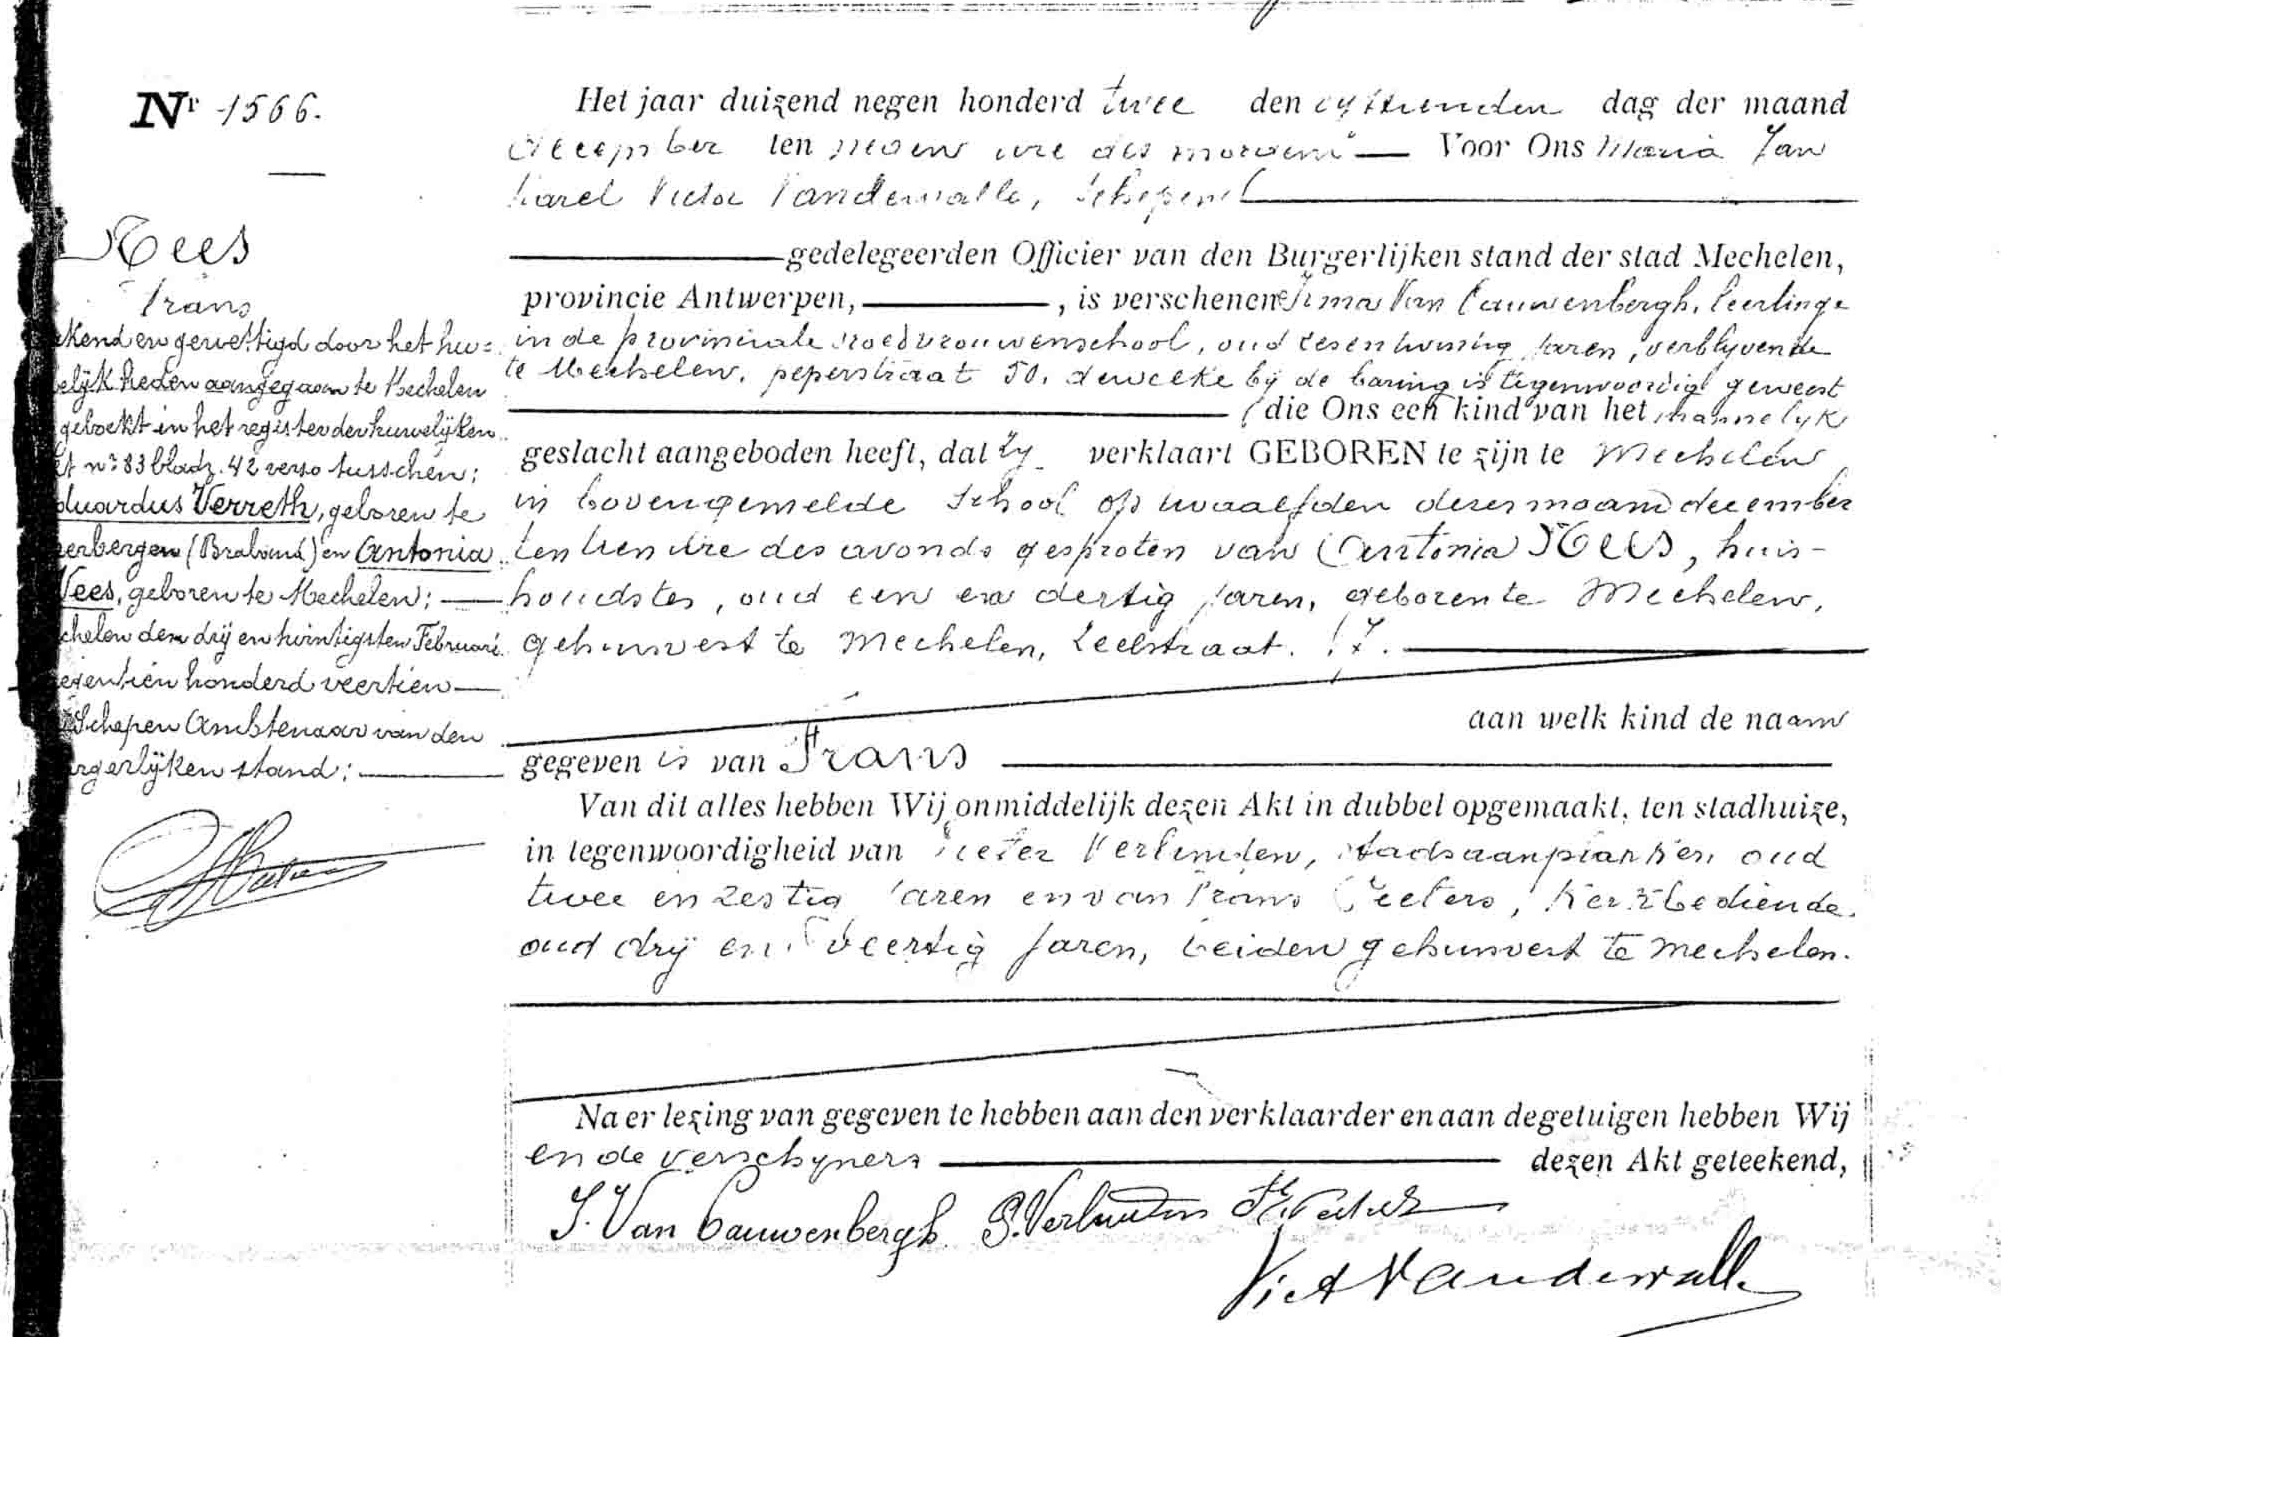 Nr 1566.
Nees
Frans
kend en gewettigd door het hu=
elijk heden aangegaan te Mechelen
geboekt in het register der huwelijken
et nr 83 bladz. 42 verso tusschen:
duardus Verreth, geboren te
erbergen (Braband) en Antonia
Nees, geboren te Mechelen; —
chelen den drij en twintigsten Februari
egentien honderd veertien —
Schepen Ambtenaar van den
rgerlijken stand: —
Het jaar duizend negen honderd twee den vyftienden dag der maand
december ten negen ure des morgens — Voor Ons Maria Jan
Karel Victor Vandewalle, Schepen
gedelegeerden Officier van den Burgerlijken stand der stad Mechelen,
provincie Antwerpen, —, is verschenen Irma Van Cauwenbergh, leerlinge
in de provinciale vroedvrouwenschool, oud zesentwintig jaren, verblyvende
te Mechelen, peperstraat 50, dewelke bij de baring is tegenwoordig geweest
die Ons een kind van het mannelyk
geslacht aangeboden heeft, dat zy verklaart GEBOREN te zijn te Mechelen
in bovengemelde school op twaalfden dezer maand december
ten tien ure des avonds gesproten van Antonia Nees, huis-
houdster, oud een en dertig jaren, geboren te Mechelen,
gehuisvest te Mechelen, Leelstraat.
aan welk kind de naam
gegeven is van Frans
Van dit alles hebben Wij onmiddelijk dezen Akt in dubbel opgemaakt, ten stadhuize,
in tegenwoordigheid van Pieter Verlinden, stadsaanplakker, oud
twee en zestig jaren en van Frans Peeters, Kerkbediende,
oud drij en veertig jaren, beiden gehuisvest te Mechelen.
Na er lezing van gegeven te hebben aan den verklaarder en aan de getuigen hebben Wij
en de verschyners — dezen Akt geteekend,
I. Van Cauwenbergh P. Verlinden
Vict Vandewalle